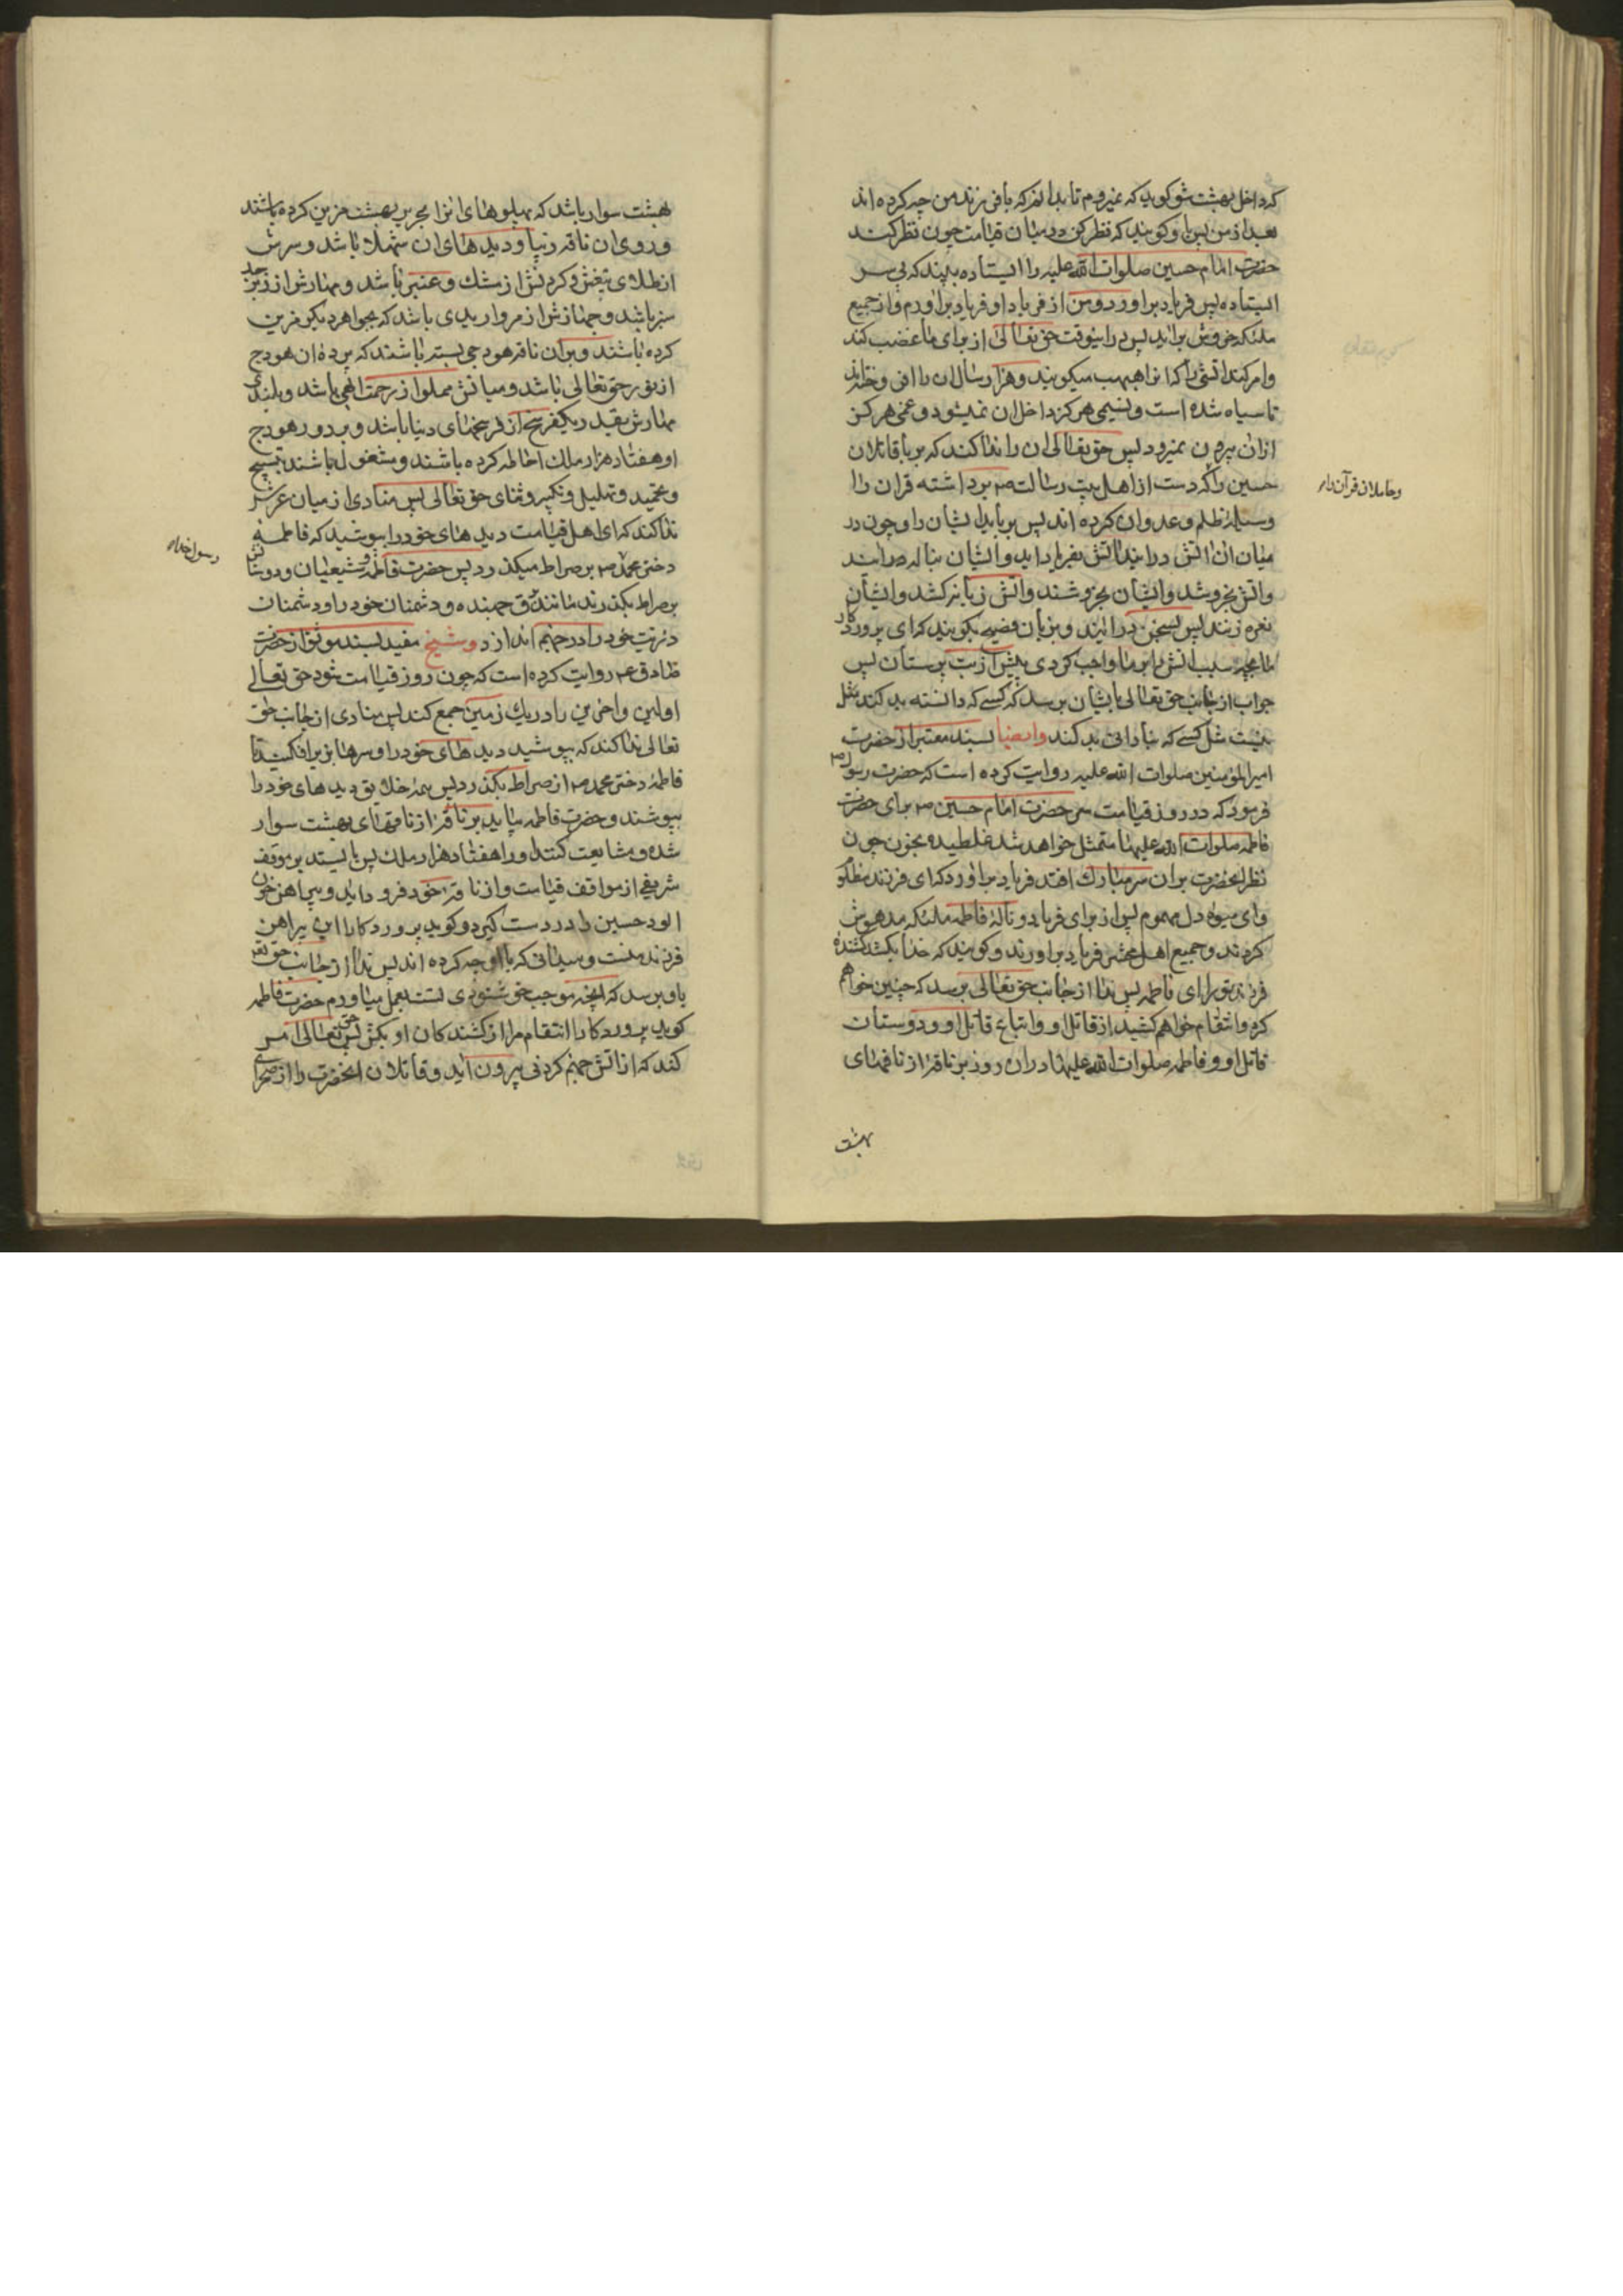 که داخل بهشت شو گوید که نمیروم تا بدانم که با فرزند من چه کرده اند
بعد از من پس باو گویند که نظر کن در میان قیامت چون نظر کند
حضرت امام حسین صلوات الله علیه را ایستاده بیند که بی سر
ایستاده پس فریاد براورد و من از فریاد او فریاد براورم و از جمیع
ملئکه خروش براید پس در اینوقت حق تعالی از برای ما غضب کند
وامر کند اتشی را که انرا هبهب میگویند و هزار سال ان را افروخته اند
تا سیاه شده است و نسیمی هرگز داخل ان نمیشود و غمی هرگز
ازان بیرون نمیرود پس حق تعالی ان را ندا کند که بربا قاتلان
حسین را که دست از اهل بیت رسالت ص برداشته قران را
وحاملان قرآن را
وسیله ظلم و عدوان کرده اند پس برباید ایشان را و چون در
میان ان اتش درایند اتش بفریاد اید و ایشان بناله درایند
واتش بخروشد وایشان بخروشند واتش زبانه کشد وایشان
نعره زنند پس بسخن درایند و بزبان فصیح بگویند که ای پروردگار
ما بچه سبب اتش را بر ما واجب کردی پیش از بت پرستان پس
جواب از جانب حق تعالی بایشان برسد که کسی که دانسته بد کند مثل
نیست مثل کسی که بنادانی بد کند وایضا بسند معتبر از حضرت
امیرالمؤمنین صلوات الله علیه روایت کرده است که حضرت رسول ص
فرمود که در روز قیامت سر حضرت امام حسین ص برای حضرت
فاطمه صلوات الله علیها متمثل خواهد شد غلطیده بخون چون
نظر انحضرت بران سر مبارک افتد فریاد براورد که ای فرزند مظلوم
وای میوه دل مهموم پس از برای فریاد و ناله فاطمه ملئکه مدهوش
گردند و جمیع اهل محشر فریاد براورند و گویند که خدا بکشد کشنده
فرزند تو را ای فاطمه پس ندا از جانب حق تعالی برسد که چنین خواهم
کرد وانتقام خواهم کشید از قاتل او واتباع قاتل او و دوستان
قاتل او و فاطمه صلوات الله علیها دران روز بر ناقه از ناقهای
بهشت
بهشت سوار باشد که پهلوهای انرا بحریر بهشت مزین کرده باشند
و روی ان ناقه زیبا و دیدهای ان شهلا باشد و سرش
از طلای بیغش و گردنش از مشک و عنبر باشد و مهارش از زبرجد
سبز باشد و جهازش از مروارید ی باشد که بجواهر دیگر مزین
کرده باشند و بران ناقه هودجی بسته باشند که پرده ان هودج
از نور حق تعالی باشد و میانش مملو از رحمت الهی باشد و بلندی
مهارش بقدر یکفرسخ از فرسخهای دنیا باشد و بر دور هودج
او هفتاد هزار ملک احاطه کرده باشند و مشغول باشند بتسبیح
و تحمید و تهلیل و تکبیر و ثنای حق تعالی پس منادی از میان عرش
ندا کند که ای اهل قیامت دیدهای خود را بپوشید که فاطمه
دختر محمد ص بر صراط میگذرد پس حضرت فاطمه و شیعیان و دوستان
رسول خدا
بر صراط بگذرند مانند برق جهنده و دشمنان خود را و دشمنان
ذریت خود را در جهنم اندازد وشیخ مفید بسند موثق از حضرت
صادق ع روایت کرده است که چون روز قیامت شود حق تعالی
اولین و اخرین را در یک زمین جمع کند پس منادی از جانب حق
تعالی ندا کند که بپوشید دیدهای خود را و سرها بزیر افکنید تا
فاطمه دختر محمد ص از صراط بگذرد پس همه خلایق دیدهای خود را
بپوشند و حضرت فاطمه بیاید بر ناقه از ناقهای بهشت سوار
شده و مشایعت کنند او را هفتاد هزار ملک پس بایستد بر موقف
شریفی از مواقف قیامت و از ناقه خود فرود اید و پیراهن خون
الود حسین را در دست گیرد و گوید پروردگارا این پیراهن
فرزند منست و میدانی که با او چه کرده اند پس ندا از جانب حق تعالی
باو برسد که انچه موجب خوشنودی تست بعمل میاورم حضرت فاطمه
گوید پروردگارا انتقام مرا از کشندکان او بکش پس حق تعالی امر
کند که از اتش جهنم گردنی بیرون اید و قاتلان انحضرت را از صحرای